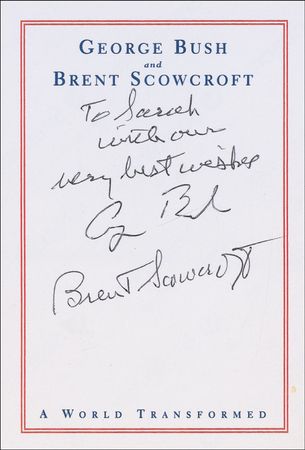 GEORGE BUSH
and
BRENT SCOWCROFT
To Sarah
with our
very best wishes
G Bush
Brent Scowcroft
A WORLD TRANSFORMED